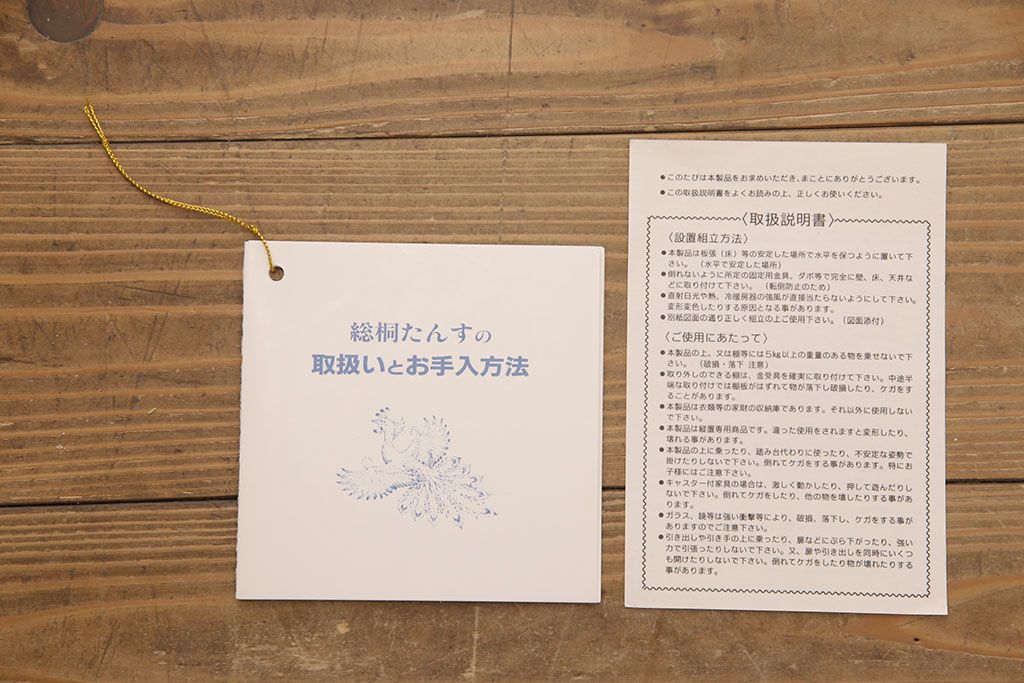 総桐たんすの
取扱いとお手入方法
●このたびは本製品をお求めいただき、まことにありがとうございます。
●この取扱説明書をよくお読みの上、正しくお使いください。
〈取扱説明書〉
〈設置組立方法〉
●本製品は板張（床）等の安定した場所で水平を保つように置いて下
さい。（水平で安定した場所）
●倒れないように所定の固定用金具、ダボ等で完全に壁、床、天井な
どに取り付けて下さい。（転倒防止のため）
●直射日光や熱、冷暖房器の強風が直接当たらないようにして下さい。
変形変色したりする原因となる事があります。
●別紙図面の通り正しく組立の上ご使用下さい。（図面添付）
〈ご使用にあたって〉
●本製品の上、又は棚等には5kg以上の重量のある物を乗せないで下
さい。（破損・落下 注意）
●取り外しのできる棚は、金受具を確実に取り付けて下さい。中途半
端な取り付けでは棚板がはずれて物が落下し破損したり、ケガをす
ることがあります。
●本製品は衣類等の家財の収納庫であります。それ以外に使用しない
で下さい。
●本製品は縦置専用商品です。違った使用をされますと変形したり、
壊れる事があります。
●本製品の上に乗ったり、踏み台代わりに使ったり、不安定な姿勢で
掛けたりしないで下さい。倒れてケガをする事があります。特にお
子様にはご注意下さい。
●キャスター付家具の場合は、激しく動かしたり、押して遊んだりし
ないで下さい。倒れてケガをしたり、他の物を壊したりする事があ
ります。
●ガラス、鏡等は強い衝撃等により、破損、落下し、ケガをする事が
ありますのでご注意下さい。
●引き出しや引き手の上に乗ったり、扉などにぶら下がったり、強い
力で引張ったりしないで下さい。又、扉や引き出しを同時にいくつ
も開けたりしないで下さい。倒れてケガをしたり物が壊れたりする
事があります。